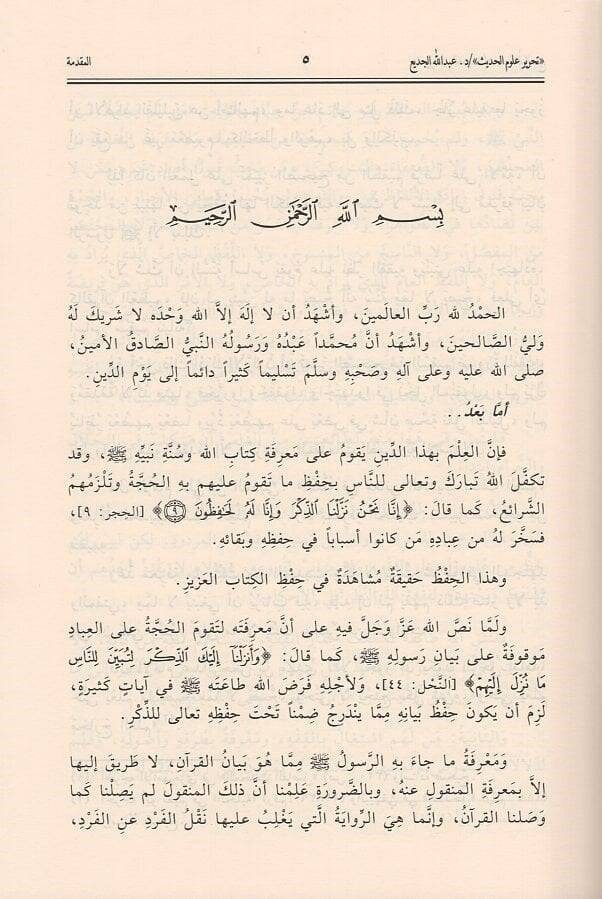 «تحرير علوم الحديث»/د. عبدالله الجديع ٥ المقدمة
بِسْمِ ٱللَّهِ ٱلرَّحْمَٰنِ ٱلرَّحِيمِ
الحمْدُ لله رَبِّ العالَمينَ، وأشْهَدُ أن لا إلَهَ إلاَّ الله وَحْدَه لا شَريكَ لَهُ
وَليُّ الصَّالحينَ، وأشْهَدُ أنَّ مُحمَّداً عَبْدُهُ وَرَسُولُهُ النَّبيُّ الصَّادقُ الأمينُ،
صلى الله عليه وعلى آلهِ وصَحْبِهِ وسلَّمَ تَسْليماً كَثيراً دائماً إلى يَوْمِ الدِّينِ.
أمَّا بَعْدُ..
فإنَّ العِلْمَ بهذا الدِّينِ يَقومُ على مَعرِفَةِ كتابِ الله وسُنَّة نَبيِّهِ ﷺ، وقد
تكفَّلَ اللهُ تَبارَكَ وتعالى للنَّاسِ بِحِفْظِ ما تَقومُ عليهم به الحُجَّةُ وتَلْزَمُهم
الشَّرائعُ، كَما قالَ: ﴿إِنَّا نَحْنُ نَزَّلْنَا ٱلذِّكْرَ وَإِنَّا لَهُۥ لَحَٰفِظُونَ ٩﴾ [الحِجر: ٩]،
فسَخَّرَ لهُ من عِبادِهِ مَن كانوا أسباباً في حِفظِهِ وبَقائهِ.
وهذا الحِفْظُ حَقيقَةٌ مُشاهَدَةٌ في حِفْظِ الكتاب العَزيزِ.
ولَمَّا نَصَّ الله عَزَّ وَجَلَّ فيهِ على أنَّ مَعرِفَتَه لتَقومَ الحُجَّةُ على العِبادِ
مَوقوفَةٌ على بَيانِ رَسولِهِ ﷺ، كَما قالَ: ﴿وَأَنزَلْنَآ إِلَيْكَ ٱلذِّكْرَ لِتُبَيِّنَ لِلنَّاسِ
مَا نُزِّلَ إِلَيْهِمْ﴾ [النَّحْل: ٤٤]، وَلأجْلِهِ فَرَضَ الله طاعَتَه ﷺ في آياتٍ كَثيرَةٍ،
لَزِمَ أن يَكونَ حِفْظُ بَيانِهِ مِمَّا يَنْدَرِجُ ضِمْناً تَحْتَ حِفْظِهِ تعالى للذِّكْرِ.
وَمَعْرِفَةُ ما جاءَ بهِ الرَّسولُ ﷺ مِمَّا هوَ بَيانُ القرآنِ، لا طَريقَ إليها
إلاَّ بمَعرِفَةِ المنقولِ عنهُ، وبالضَّرورَةِ عَلِمْنا أنَّ ذلكَ المنقولَ لم يَصِلْنا كَما
وَصَلنا القرآنُ، وإنَّما هِيَ الرِّوايَةُ الَّتي يَغْلِبُ عليها نَقْلُ الفَرْدِ عنِ الفَرْدِ،